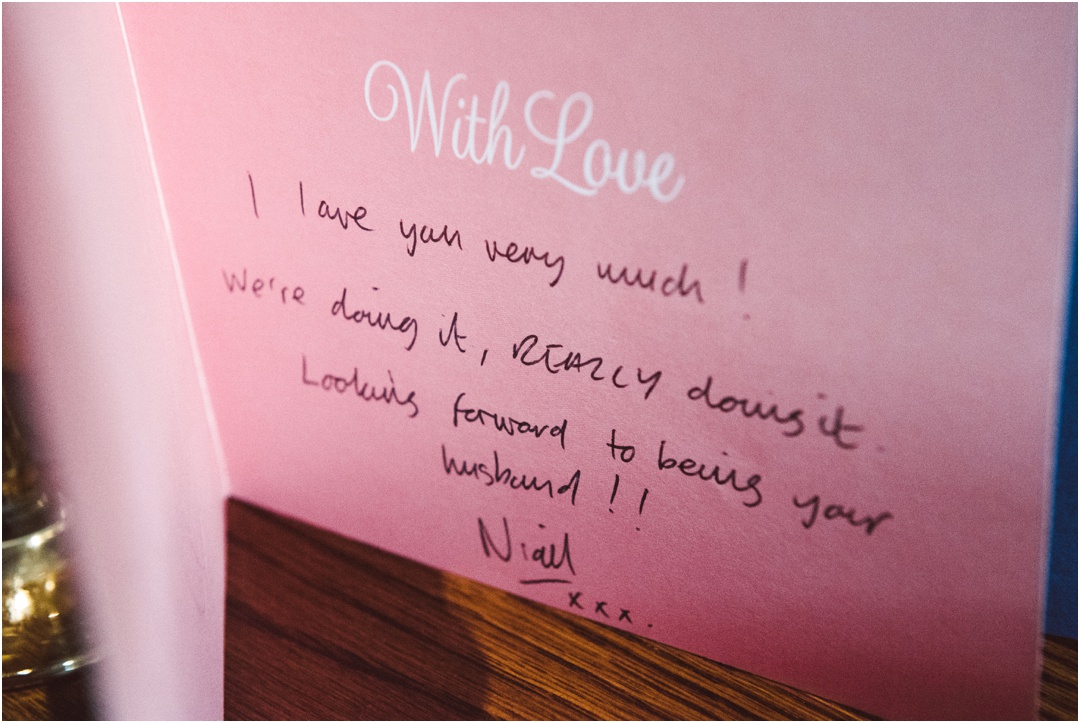 With Love
I love you very much !
We're doing it, REALLY doing it.
Looking forward to being your
husband !!
Niall
xxx.